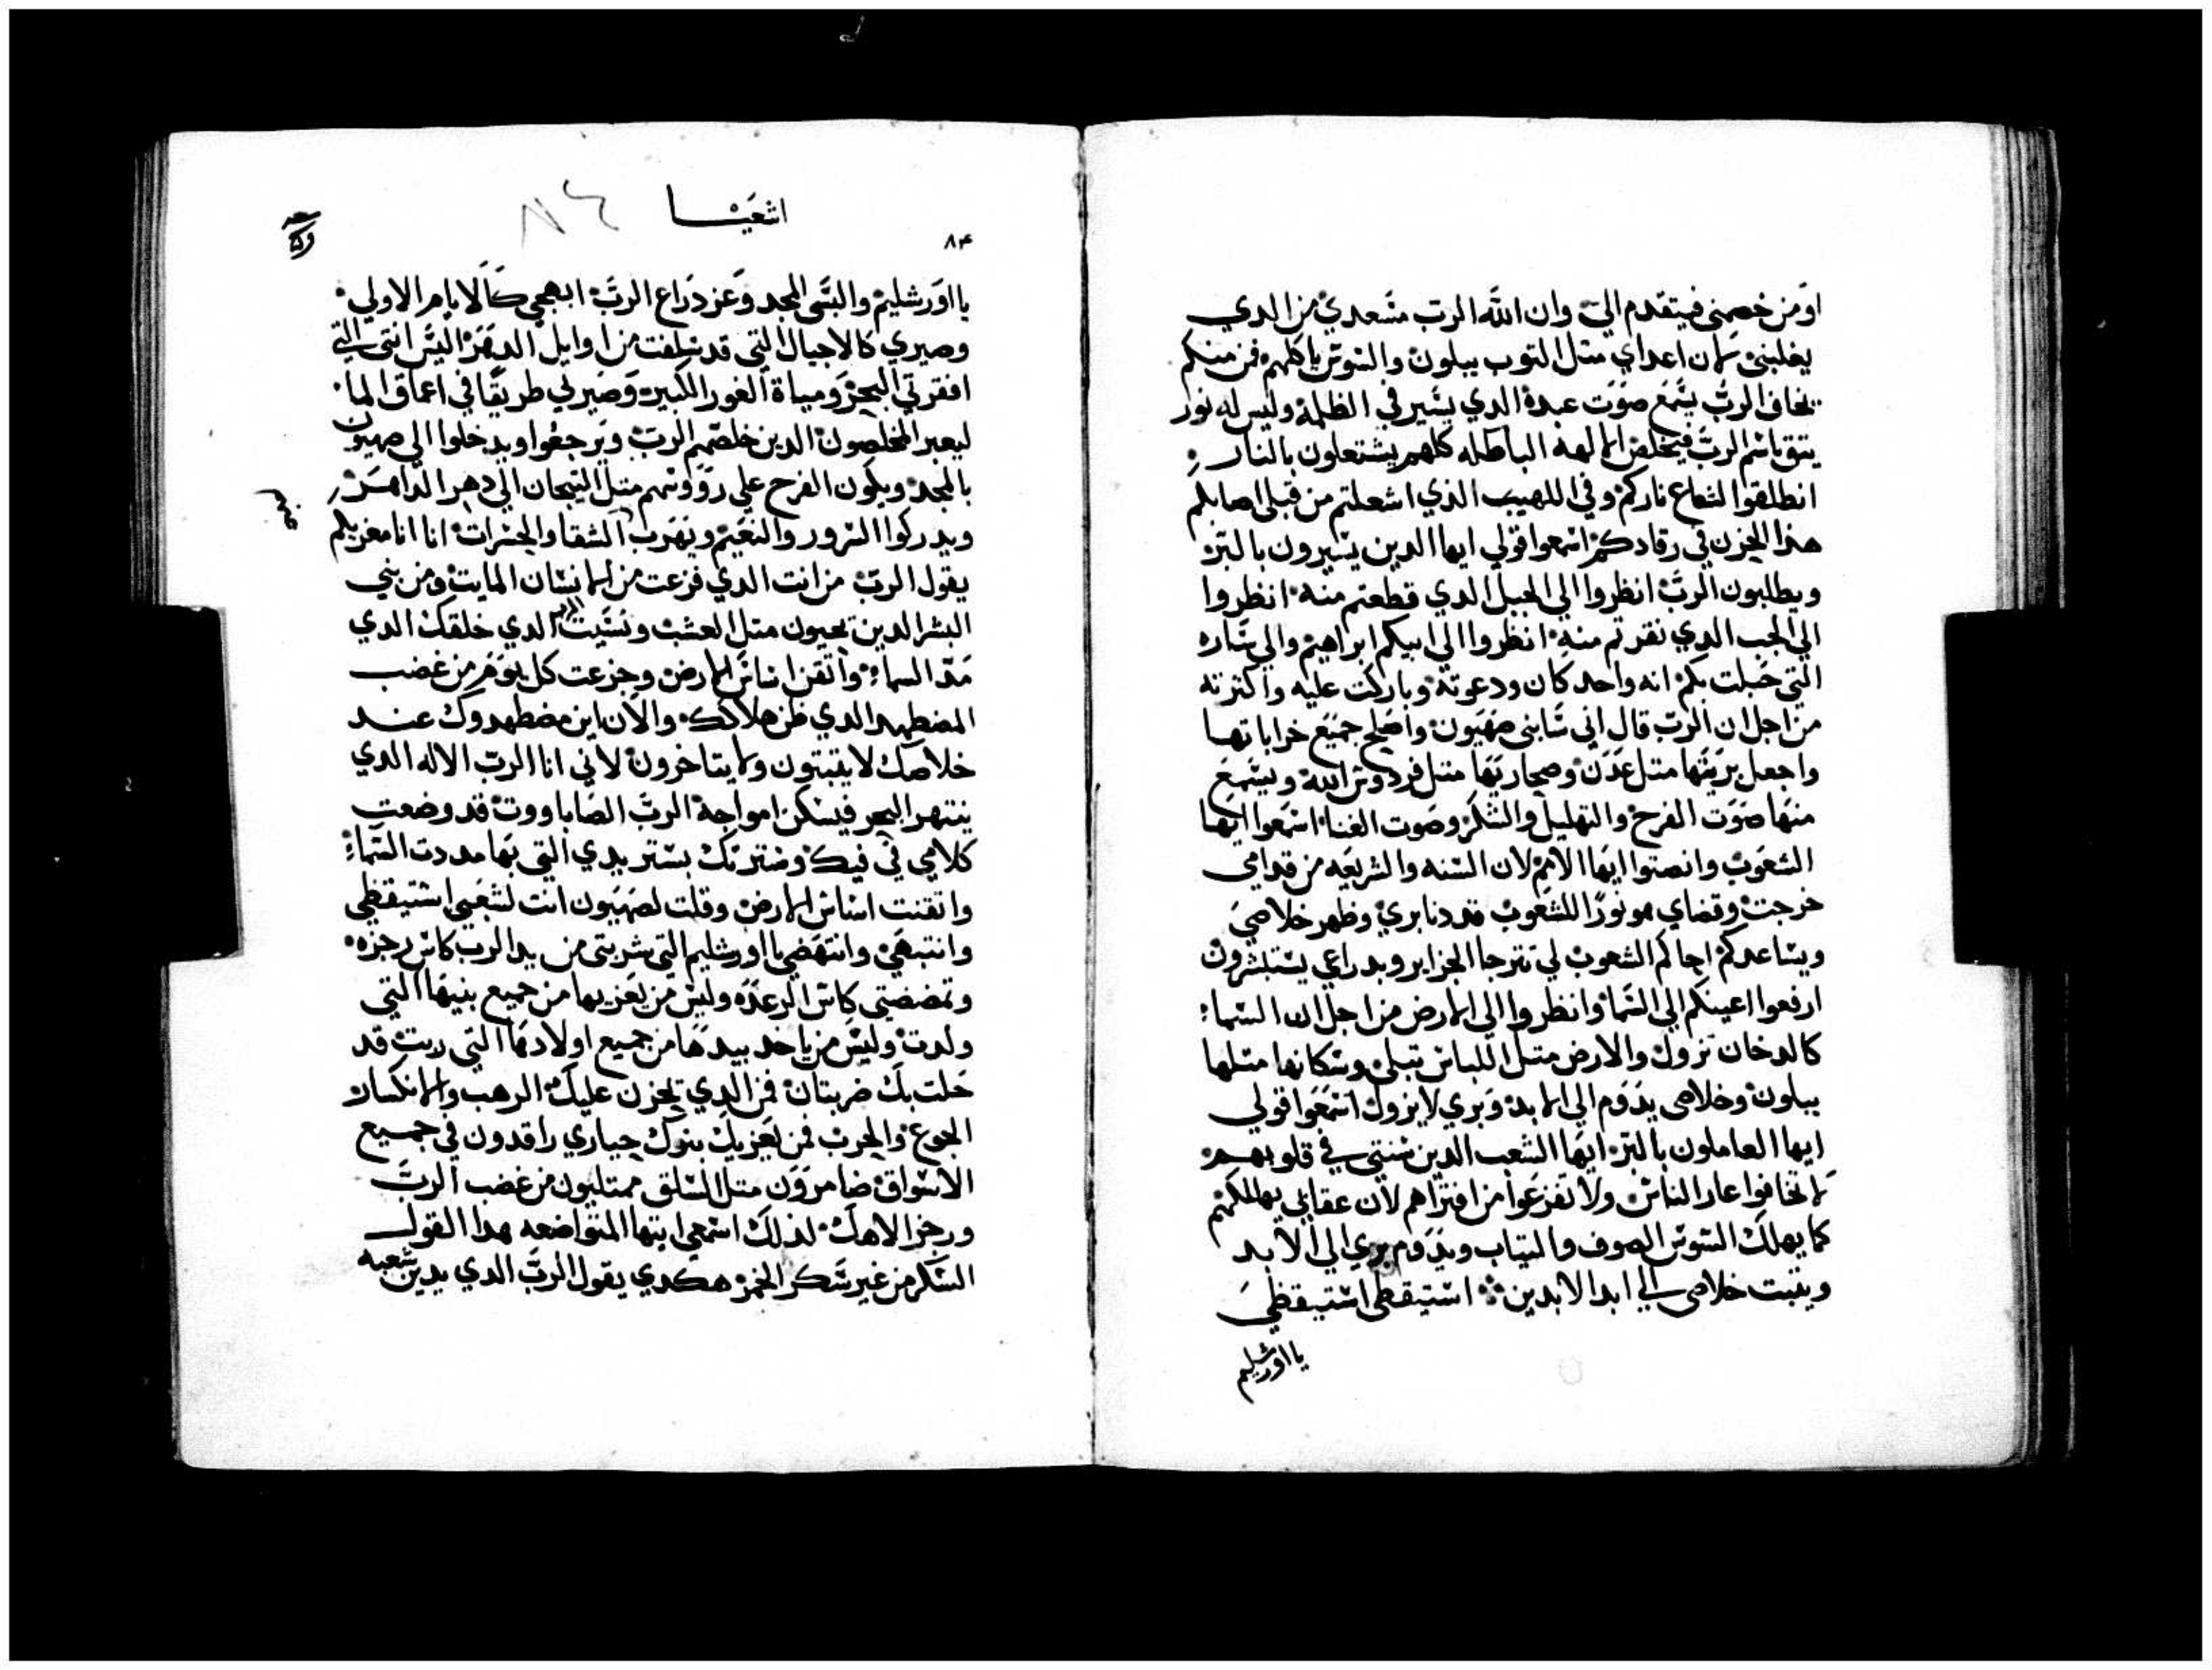 اومن خصمني فيتقدم الي وان الله الرب مسعدي من الدي
يغلبني لان اعداي متل التوب يبلون والسوس ياكلهم فمن منكم
يخاف الرب يسمع صوت عبده الدي يسير في الظلمة وليس له نور
يتق باسم الرب فيخلص الالهه الباطله كلهم يشتعلون بالنار
انطلقوا لشعاع ناركم وفي اللهيب الذي اشعلتم من قبلي اصابكم
هذا الحزن في رقادكم اسمعوا قولي ايها الدين يسيرون بالبر
ويطلبون الرب انظروا الي الجبل الدي قطعتم منه انظروا
الي الجب الدي نقرتم منه انظروا الي ابيكم ابراهيم والي ساره
التي حبلت بكم انه واحد كان ودعوته وباركت عليه واكترته
من اجل ان الرب قال اني سابني صهيون واصلح جميع خراباتها
واجعل بريتها متل عدن وصحاريها متل فردوس الله ويسمع
منها صوت الفرح والتهليل والشكر وصوت الغنا اسمعوا ايها
الشعوب وانصتوا ايها الامم لان السنه والشريعه من قدامي
خرجت وقضاي هو نورا للشعوب قد دنا بري وظهر خلاصي
ويساعدكم احاكم الشعوب لي تترجا الجزاير وبدراعي يستبشرون
ارفعوا اعينكم الي السما وانظروا الي الارض من اجل ان السما
كالدخان تزول والارض متل اللباس تبلي وسكانها متلها
يبلون وخلاصي يدوم الي الابد وبري لا يزول اسمعوا قولي
ايها العاملون بالبر ايها الشعب الدين سنتي في قلوبهم
لا تخافوا عار الناس ولا تفزعوا من افتراهم لان عقابي يهلكهم
كما يهلك السوس الصوف والتياب ويدوم بري الي الابد
ويتبت خلاصي الي ابد الابدين استيقظي استيقظي
يا اورشليم
اشعيا
٨۴
يا اورشليم والبسي المجد وعز دراع الرب ابهجي كالايام الاولي
وصيري كالاجيال التي قد سلفت من اوايل الدهر اليس انتي التي
افقرتي البحر ومياة الغور الكبيره وصير لي طريقا في اعماق الما
ليعبر المخلصون الدين خلصهم الرب ويرجعوا ويدخلوا الي صهيون
بالمجد ويكون الفرح علي رووسهم متل التيجان الي دهر الداهر
ويدركوا السرور والنعيم ويهرب الشقا والحسرات انا انا معزيكم
يقول الرب من انت الدي فزعت من الانسان المايت ومن بني
البشر الدين يحيون متل العشب ونسيت الرب الدي خلقك الدي
مد السما واتقن اساس الارض وجزعت كل يوم من غضب
المضطهد الدي ظن هلاكك والان اين مضطهدوك عند
خلاصك لا يقبتون ولا يتاخرون لاني انا الرب الاله الدي
ينتهر البحر فيسكن امواجة الرب الصاباووت قد وضعت
كلامي في فيك وسترتك بستر يدي التي بها مددت السما
واتقنت اساس الارض وقلت لصهيون انت لشعبي استيقظي
وانتبهي وانتهضي يا اورشليم التي شربتي من يد الرب كاس رجزه
وتمضضتي كاس الرعده وليس من يعزيها من جميع بنيها التي
ولدت وليس من ياخد بيدها من جميع اولادها التي ربت قد
حلت بك ضربتان فمن الدي يحزن عليك الرهب والانكسار
الجوع والحرب فمن يعزيك بنوك حياري راقدون في جميع
الاسواق ضامرون متل السلق ممتليون من غضب الرب
ورجز الاهك لذلك اسمعي ايتها المتواضعه هدا القول
السكر من غير سكر الخمر هكدي يقول الرب الدي يدين شعبه